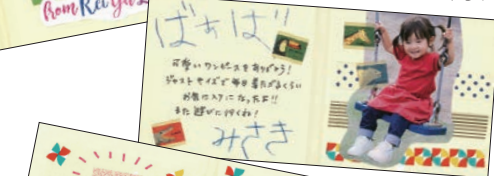 from Rei
ばぁば
可愛いワンピースをありがとう!
ジャストサイズで毎日着たがるくらい
お気に入りになったよ!!
また遊びに行くね!
みさき